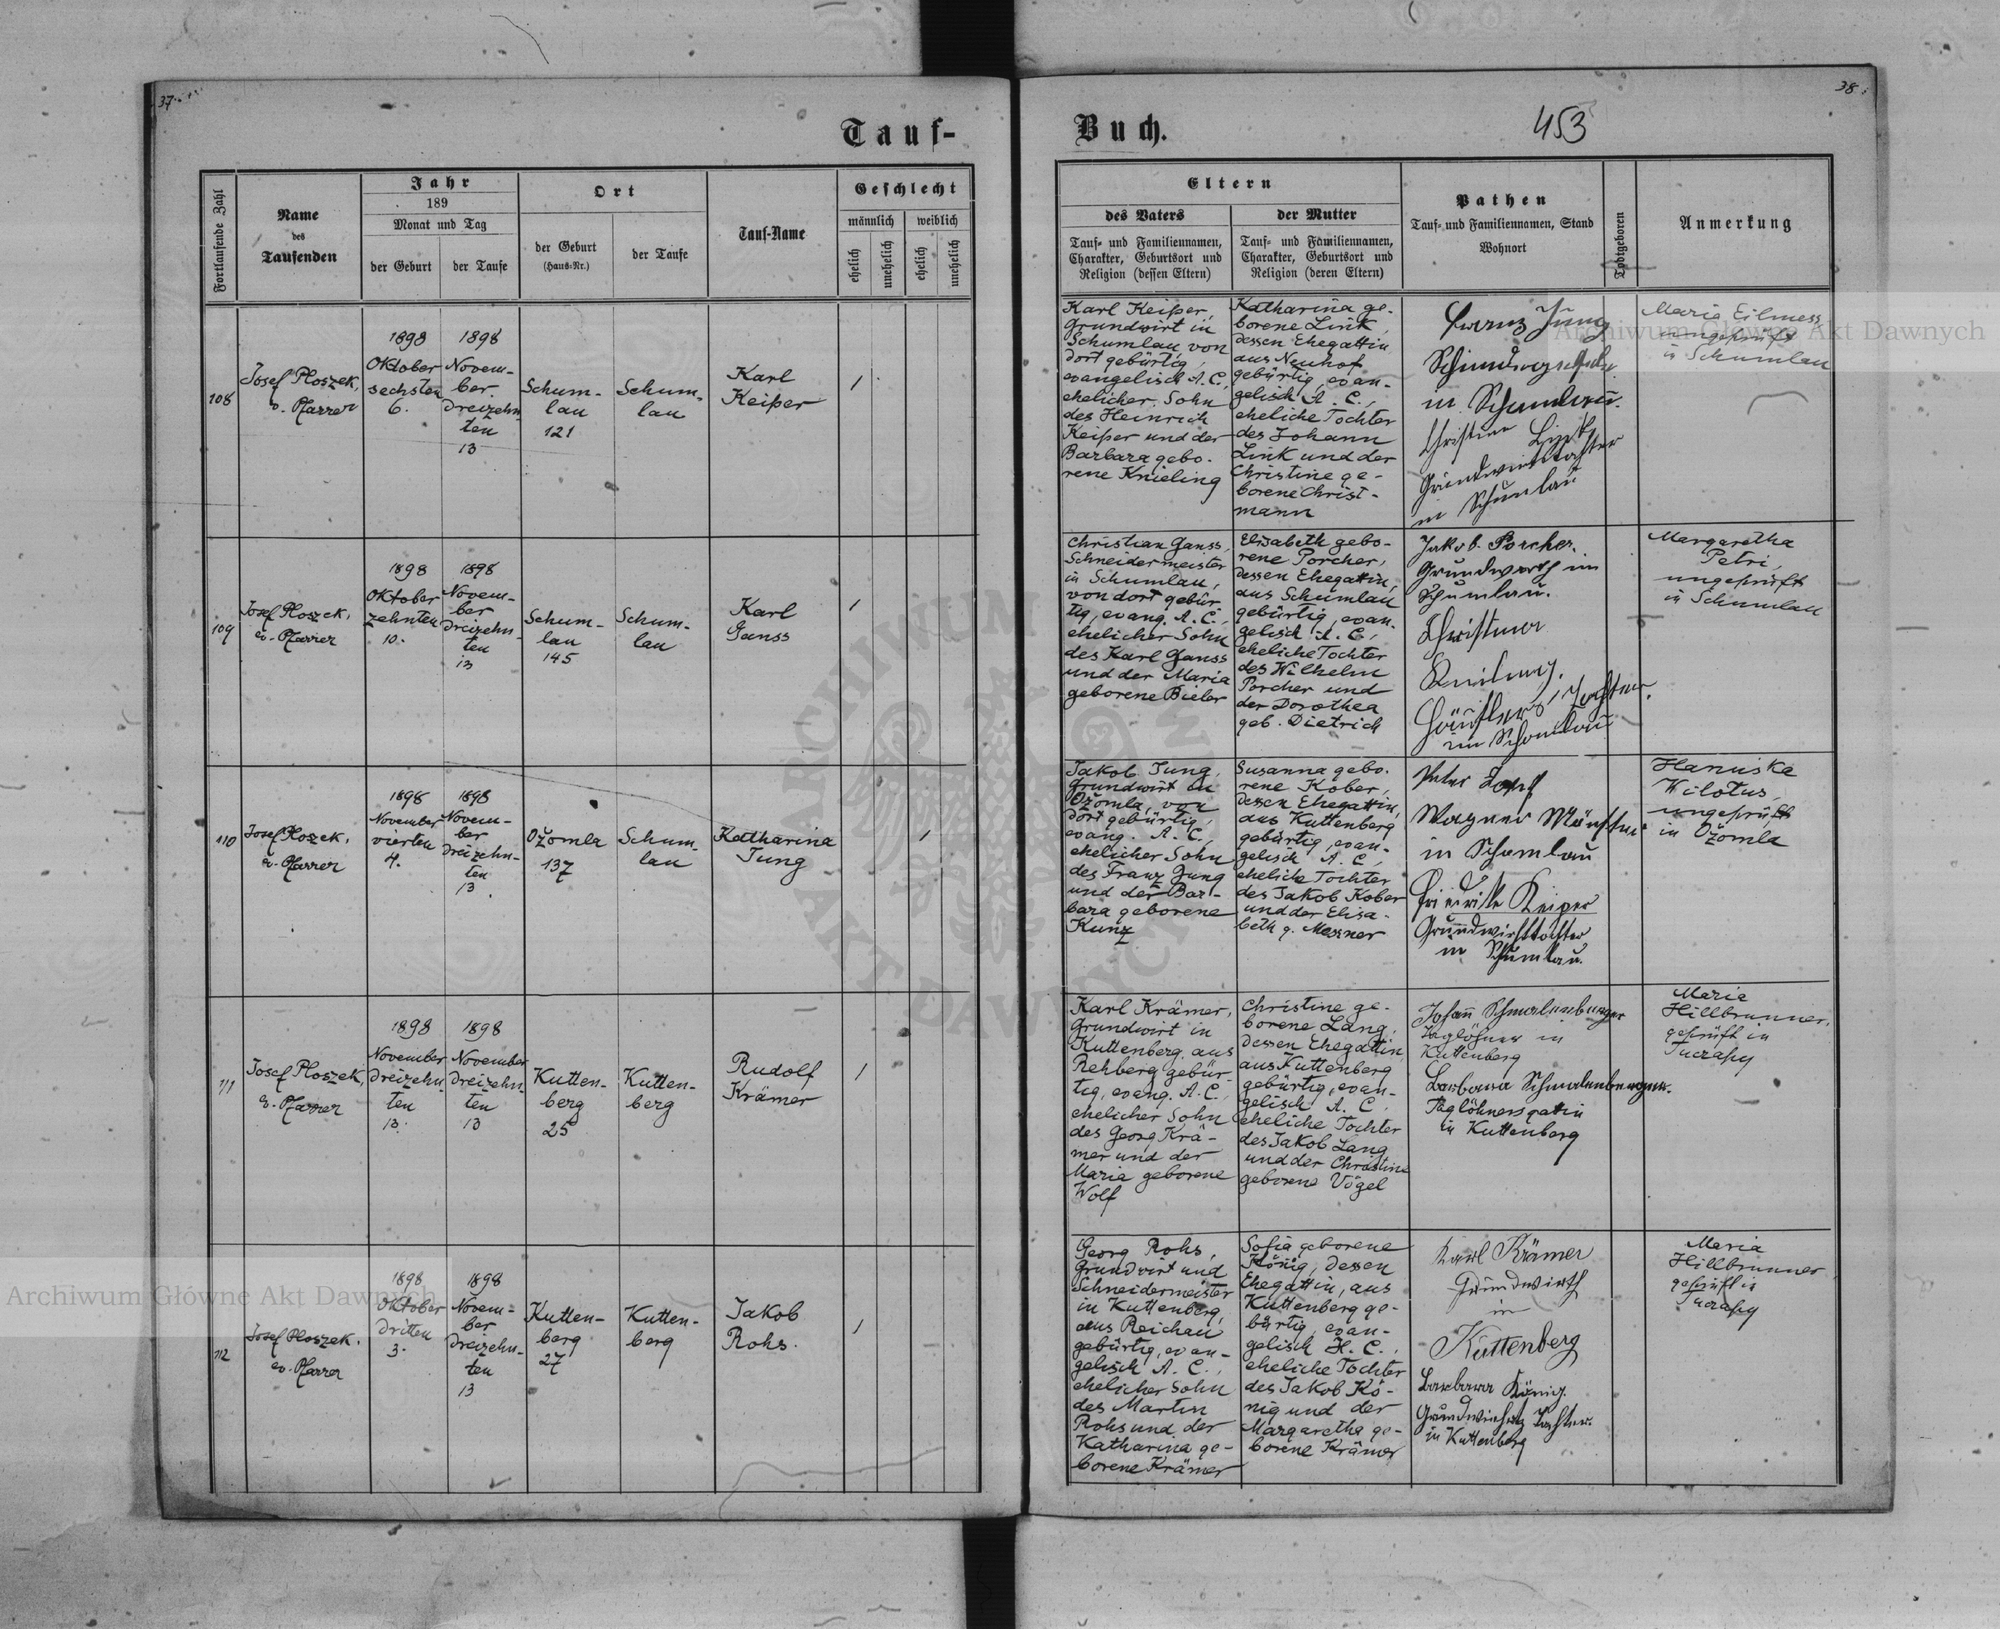 37.
Tauf-
Fortlaufende Zahl
Name
des
Taufenden
Jahr
189
Monat und Tag
der Geburt
der Taufe
Ort
der Geburt
(Haus-Nr.)
der Taufe
Tauf-Name
Geschlecht
männlich
weiblich
ehelich
unehelich
ehelich
unehelich
108
Josef Ploszek,
ev. Pfarrer
1898
Oktober
sechsten
6.
1898
Novem-
ber
dreizehn-
ten
13
Schum-
lau
121
Schum-
lau
Karl
Keiper
1
109
Josef Ploszek,
ev. Pfarrer
1898
Oktober
zehnten
10.
1898
Novem-
ber
dreizehn-
ten
13
Schum-
lau
145
Schum-
lau
Karl
Ganss
1
110
Josef Ploszek,
ev. Pfarrer
1898
November
vierten
4.
1898
Novem-
ber
dreizehn-
ten
13.
Ožomla
137
Schum-
lau
Katharina
Jung
1
111
Josef Ploszek,
ev. Pfarrer
1898
November
dreizehn-
ten
13.
1898
November
dreizehn-
ten
13
Kutten-
berg
25
Kutten-
berg
Rudolf
Krämer
1
112
Josef Ploszek.
ev. Pfarrer
1898
Oktober
dritten
3.
1898
Novem-
ber
dreizehn-
ten
13
Kutten-
berg
27
Kutten-
berg
Jakob
Rohs.
1
38
Buch.
453
Eltern
des Vaters
Tauf- und Familiennamen,
Charakter, Geburtsort und
Religion (dessen Eltern)
der Mutter
Tauf- und Familiennamen,
Charakter, Geburtsort und
Religion (deren Eltern)
Pathen
Tauf- und Familiennamen, Stand
Wohnort
Todtgeboren
Anmerkung
Karl Keiper,
Grundwirt in
Schumlau von
dort gebürtig,
evangelisch A. C.,
ehelicher Sohn
des Heinrich
Keiper und der
Barbara gebo-
rene Knieling
Katharina ge-
borene Link,
dessen Ehegattin
aus Neuhof
gebürtig, evan-
gelisch A. C.,
eheliche Tochter
des Johann
Link und der
Christine ge-
borene Christ-
mann
Franz Jung
in Schumlau.
Christine
Grundwirtstochter
in Schumlau
Maria Eilmess
ungeprüft
in Schumlau
Christian Ganss,
Schneidermeister
in Schumlau,
von dort gebür-
tig, evang. A. C.,
ehelicher Sohn
des Karl Ganss
und der Maria
geborene Bieler
Elisabeth gebo-
rene Porcher,
dessen Ehegattin,
aus Schumlau
gebürtig, evan-
gelisch A. C.,
eheliche Tochter
des Wilhelm
Porcher und
der Dorothea
geb. Dietrich
Jakob Porcher.
Grundwirth in
Schumlau.
Christina
Häuslers Tochter.
in Schumlau
Margaretha
Petri,
ungeprüft
in Schumlau
Jakob Jung,
Grundwirt in
Ožomla, von
dort gebürtig,
evang. A. C.,
ehelicher Sohn
des Franz Jung
und der Bar-
bara geborene
Kunz
Susanna gebo-
rene Kober,
dessen Ehegattin,
aus Kuttenberg
gebürtig, evan-
gelisch A. C.,
eheliche Tochter
des Jakob Kober
und der Elisa-
beth g. Mezner
Peter
Wagner
in Schumlau
Friedrike Keiper
Grundwirttochter
in Schumlau.
Hanuska
Wilotus,
ungeprüft
in Ožomla
Karl Krämer,
Grundwirt in
Kuttenberg, aus
Rehberg gebür-
tig, evang. A. C.,
ehelicher Sohn
des Georg Krä-
mer und der
Maria geborene
Wolf
Christine ge-
borene Lang,
dessen Ehegattin,
aus Kuttenberg
gebürtig, evan-
gelisch A. C.
eheliche Tochter
des Jakob Lang
und der Christine
geborene Vögel
Johann Schmalenberger
Taglöhner in
Kuttenberg
Barbara Schmalenberger.
Taglöhnersgattin
in Kuttenberg
Maria
Hillbrunner,
geprüft in
Tuczapy
Georg Rohs,
Grundwirt und
Schneidermeister
in Kuttenberg,
aus Reichau
gebürtig, evan-
gelisch A. C.,
ehelicher Sohn
des Martin
Rohs und der
Katharina ge-
borene Krämer
Sofia geborene
König, dessen
Ehegattin, aus
Kuttenberg ge-
bürtig, evan-
gelisch H. C.,
eheliche Tochter
des Jakob Kö-
nig und der
Margaretha ge-
borene Krämer
Karl Krämer
Grundwirth
in
Kuttenberg
Barbara König.
Grundwirths Tochter.
in Kuttenberg
Maria
Hillbrunner,
geprüft in
Tuczapy
Archiwum Główne Akt Dawnych
Archiwum Główne Akt Dawnych
ARCHIWUM GŁÓWNE AKT DAWNYCH